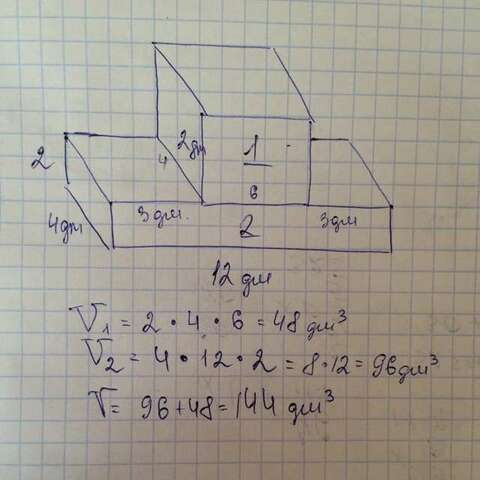 2
4
2дм
1
6
4дм
3дм.
2
3дм
12 дм
V₁ = 2 · 4 · 6 = 48 дм³
V₂ = 4 · 12 · 2 = 8 · 12 = 96 дм³
V = 96 + 48 = 144 дм³